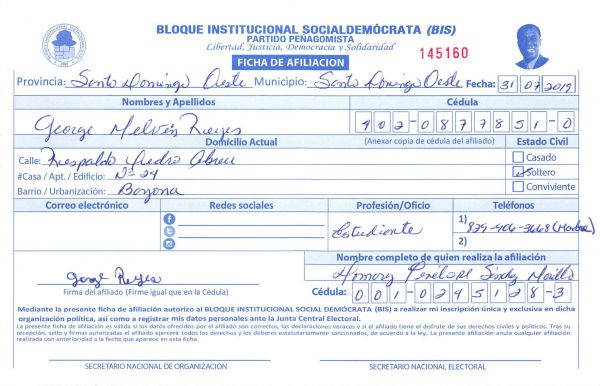 BLOQUE INSTITUCIONAL SOCIALDEMÓCRATA (BIS)
PARTIDO PEÑAGOMISTA
Libertad, Justicia, Democracia y Solidaridad
FICHA DE AFILIACION
145160
Provincia: Santo Domingo Oeste Municipio: Santo Domingo Oeste Fecha: 31 07 2019
Nombres y Apellidos Cédula
George Melvin Reyes 402-0877851-0
Domicilio Actual (Anexar copia de cédula del afiliado) Estado Civil
Calle: Respaldo Pedro Abreu Casado
#Casa / Apt. / Edificio: Nº 24 Soltero
Barrio / Urbanización: Bayona Conviviente
Correo electrónico Redes sociales Profesión/Oficio Teléfonos
Estudiante 1) 829-406-3668 (Madre)
2)
Nombre completo de quien realiza la afiliación
George Reyes Penélope Sánchez Morillo
Firma del afiliado (Firme igual que en la Cédula) Cédula: 001-0245128-3
Mediante la presente ficha de afiliación autorizo al BLOQUE INSTITUCIONAL SOCIAL DEMÓCRATA (BIS) a realizar mi inscripción única y exclusiva en dicha
organización política, así como a registrar mis datos personales ante la Junta Central Electoral.
La presente ficha de afiliación es válida si los datos ofrecidos por el afiliado son correctos, las declaraciones veraces y si el afiliado tiene el disfrute de sus derechos civiles y políticos. Tras su
recepción, sello y firmas autorizadas el afiliado ejercerá todos los derechos y los deberes estatutariamente sancionados, de acuerdo a la ley. La presente afiliación anula cualquier afiliación
realizada con anterioridad a la fecha que aparece en esta ficha.
SECRETARIO NACIONAL DE ORGANIZACIÓN SECRETARIO NACIONAL ELECTORAL